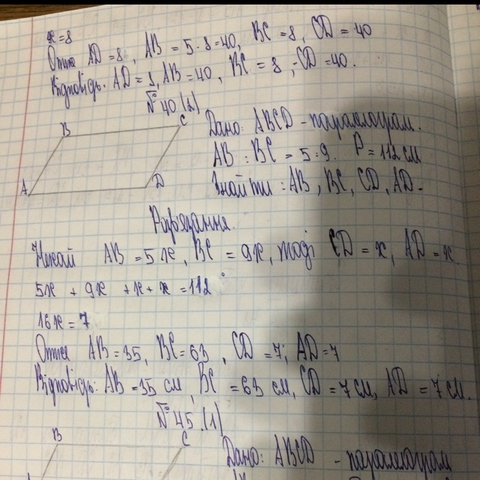 x = 8
Отже AD = 8, AB = 5·8 = 40, BC = 8, CD = 40
Відповідь: AD = 8, AB = 40, BC = 8, CD = 40.
№ 40 (2)
B C
A D
Дано: ABCD - паралелограм.
AB : BC = 5:9. P = 112 см
Знайти: AB, BC, CD, AD -
Розв'язання.
Нехай AB = 5x, BC = 9x, тоді CD = x, AD = x.
5x + 9x + x + x = 112
16x = 7
Отже AB = 35, BC = 63, CD = 7, AD = 7
Відповідь: AB = 35 см, BC = 63 см, CD = 7 см, AD = 7 см.
№ 45 (1)
B C
Дано: ABCD - паралелограм